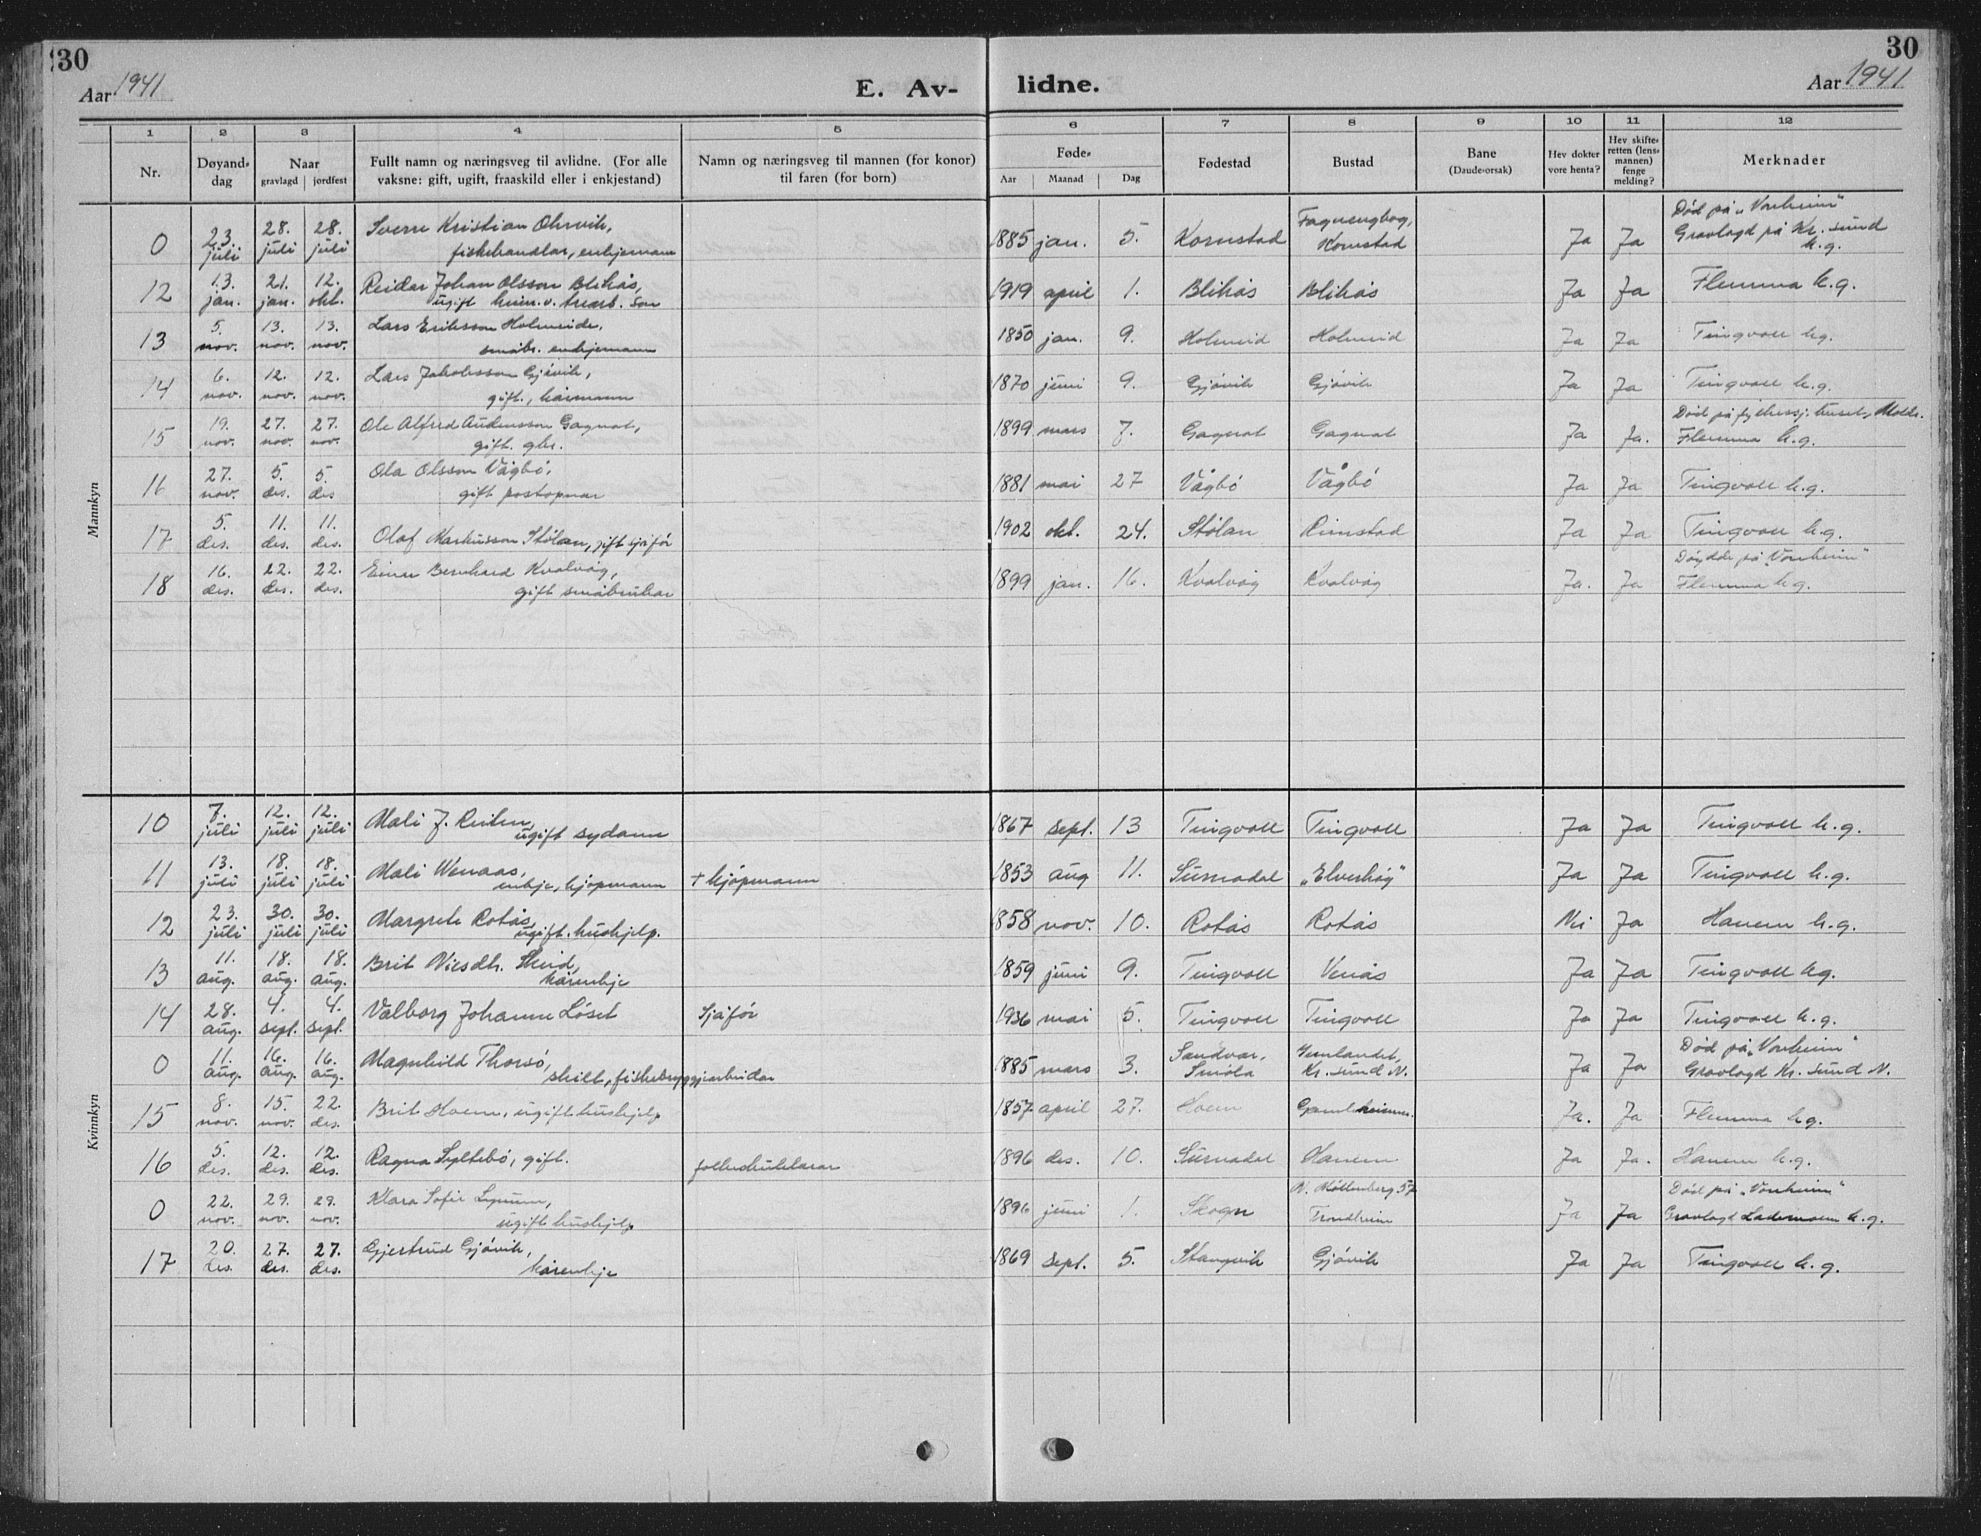 30
30
Aar 1941
E. Av-
lidne.
Aar 1941
1 2 3 4 5 6 7 8 9 10 11 12
Nr.
Døyand-
dag
Naar
gravlagd jordfest
Fullt namn og næringsveg til avlidne. (For alle
vaksne: gift, ugift, fraaskild eller i enkjestand)
Namn og næringsveg til mannen (for konor)
til faren (for born)
Føde-
Aar Maanad Dag
Fødestad
Bustad
Bane
(Daude-orsak)
Hev dokter
vore henta?
Hev skifte-
retten (lens-
mannen)
fenge
melding?
Merknader
Mannkyn
0 23. juli 28. juli 28. juli Sverre Kristian Ohrvik,
fiskehandlar, enkjemann
1885 jan. 5. Kornstad Kornstad Ja Ja Død på "Vonheim"
Gravlagd på Kr. sund
k.g.
12 13. jan. 21. jan. 12. okt. Reidar Johan Olsson Blikås,
ugift son
1919 april 1. Blikås Blikås Ja Ja Flemma k.g.
13 5. nov. 13. nov. 13. nov. Lars Eriksson Holmeide,
småbr. enkjemann
1850 jan. 9. Holmeid Holmeid Ja Ja Tingvoll kg.
14 6. nov. 12. nov. 12. nov. Lars Jakobsson Gjøvik,
gift, kårmann
1870 juni 9. Gjøvik Gjøvik Ja Ja Tingvoll k.g.
15 19. nov. 27. nov. 27. nov. Ole Alfred Audensson Gagnat,
gift. gbr.
1899 mars 7. Gagnat Gagnat Ja Ja. Død på fylkessj. huset, Molde.
Flemma k.g.
16 27. nov. 5. des. 5. des Ola Olsson Vågbø,
gift postopnar
1881 mai 27 Vågbø Vågbø Ja Ja Tingvoll k.g.
17 5. des. 11. des. 11. des. Olaf Markusson Stølan, gift sjåfør
1902 okt. 24. Stølan Rimstad Ja Ja Tingvoll k.g.
18 16. des. 22. des. 22. des. Einar Bernhard Kvalvåg,
gift småbrukar
1899 jan. 16. Kvalvåg Kvalvåg Ja. Ja Døydde på "Vonheim"
Flemma k.g.
Kvinnkyn
10 7. juli 12. juli 12. juli Mali J. Reiten,
ugift sydame
1867 sept. 13 Tingvoll Tingvoll Ja Ja Tingvoll k.g.
11 13. juli 18. juli 18. juli Mali Wenaas,
enkje, kjøpmann + kjøpmann
1853 aug 11. Surnadal "Elverhøg" Ja Ja Tingvoll k.g.
12 23. juli 30. juli 30. juli Margrete Rotås,
ugift. hushjelp.
1858 nov. 10. Rotås Rotås Nei Ja Hanem k.g.
13 11. aug. 18. aug. 18. aug. Brit Nilsdtr. Skeid,
kårenkje
1859 juni 9. Tingvoll Venås Ja Ja Tingvoll kg.
14 28. aug. 4. sept. 4. sept. Valborg Johanne Løset Sjåfør
1936 mai 5. Tingvoll Tingvoll Ja Ja Tingvoll k.g.
0 11. aug. 16. aug. 16. aug. Magnhild Thorsø,
skilt, fiskebryggjearbeidar
1885 mars 3. Sandvær,
Smøla Gomlandet,
Kr. sund N. Ja Ja Død på "Vonheim"
Gravlagd Kr. sund N.
15 8. nov. 15. nov. 22. des. Brit Hoem, ugift hushjelp
1857 april 27. Hoem Gamleheimen. Ja. Ja Flemma kg.
16 5. des. 12. des. 12. des. Ragna Syltebø, gift. folkeskulelærar
1896 des. 10. Surnadal Hanem Ja Ja. Hanem k.g.
0 22. nov. 29. nov. 29. nov. Klara Sofie Lynum,
ugift hushjelp
1896 juni 1. Skogn N. Møllenberg 57
Trondheim Ja Ja Død på "Vonheim"
Gravlagd Lademoen k.g.
17 20. des. 27. des. 27. des. Gjertrud Gjøvik,
kårenkje
1869 sept. 5. Stangvik Gjøvik Ja Ja Tingvoll k.g.